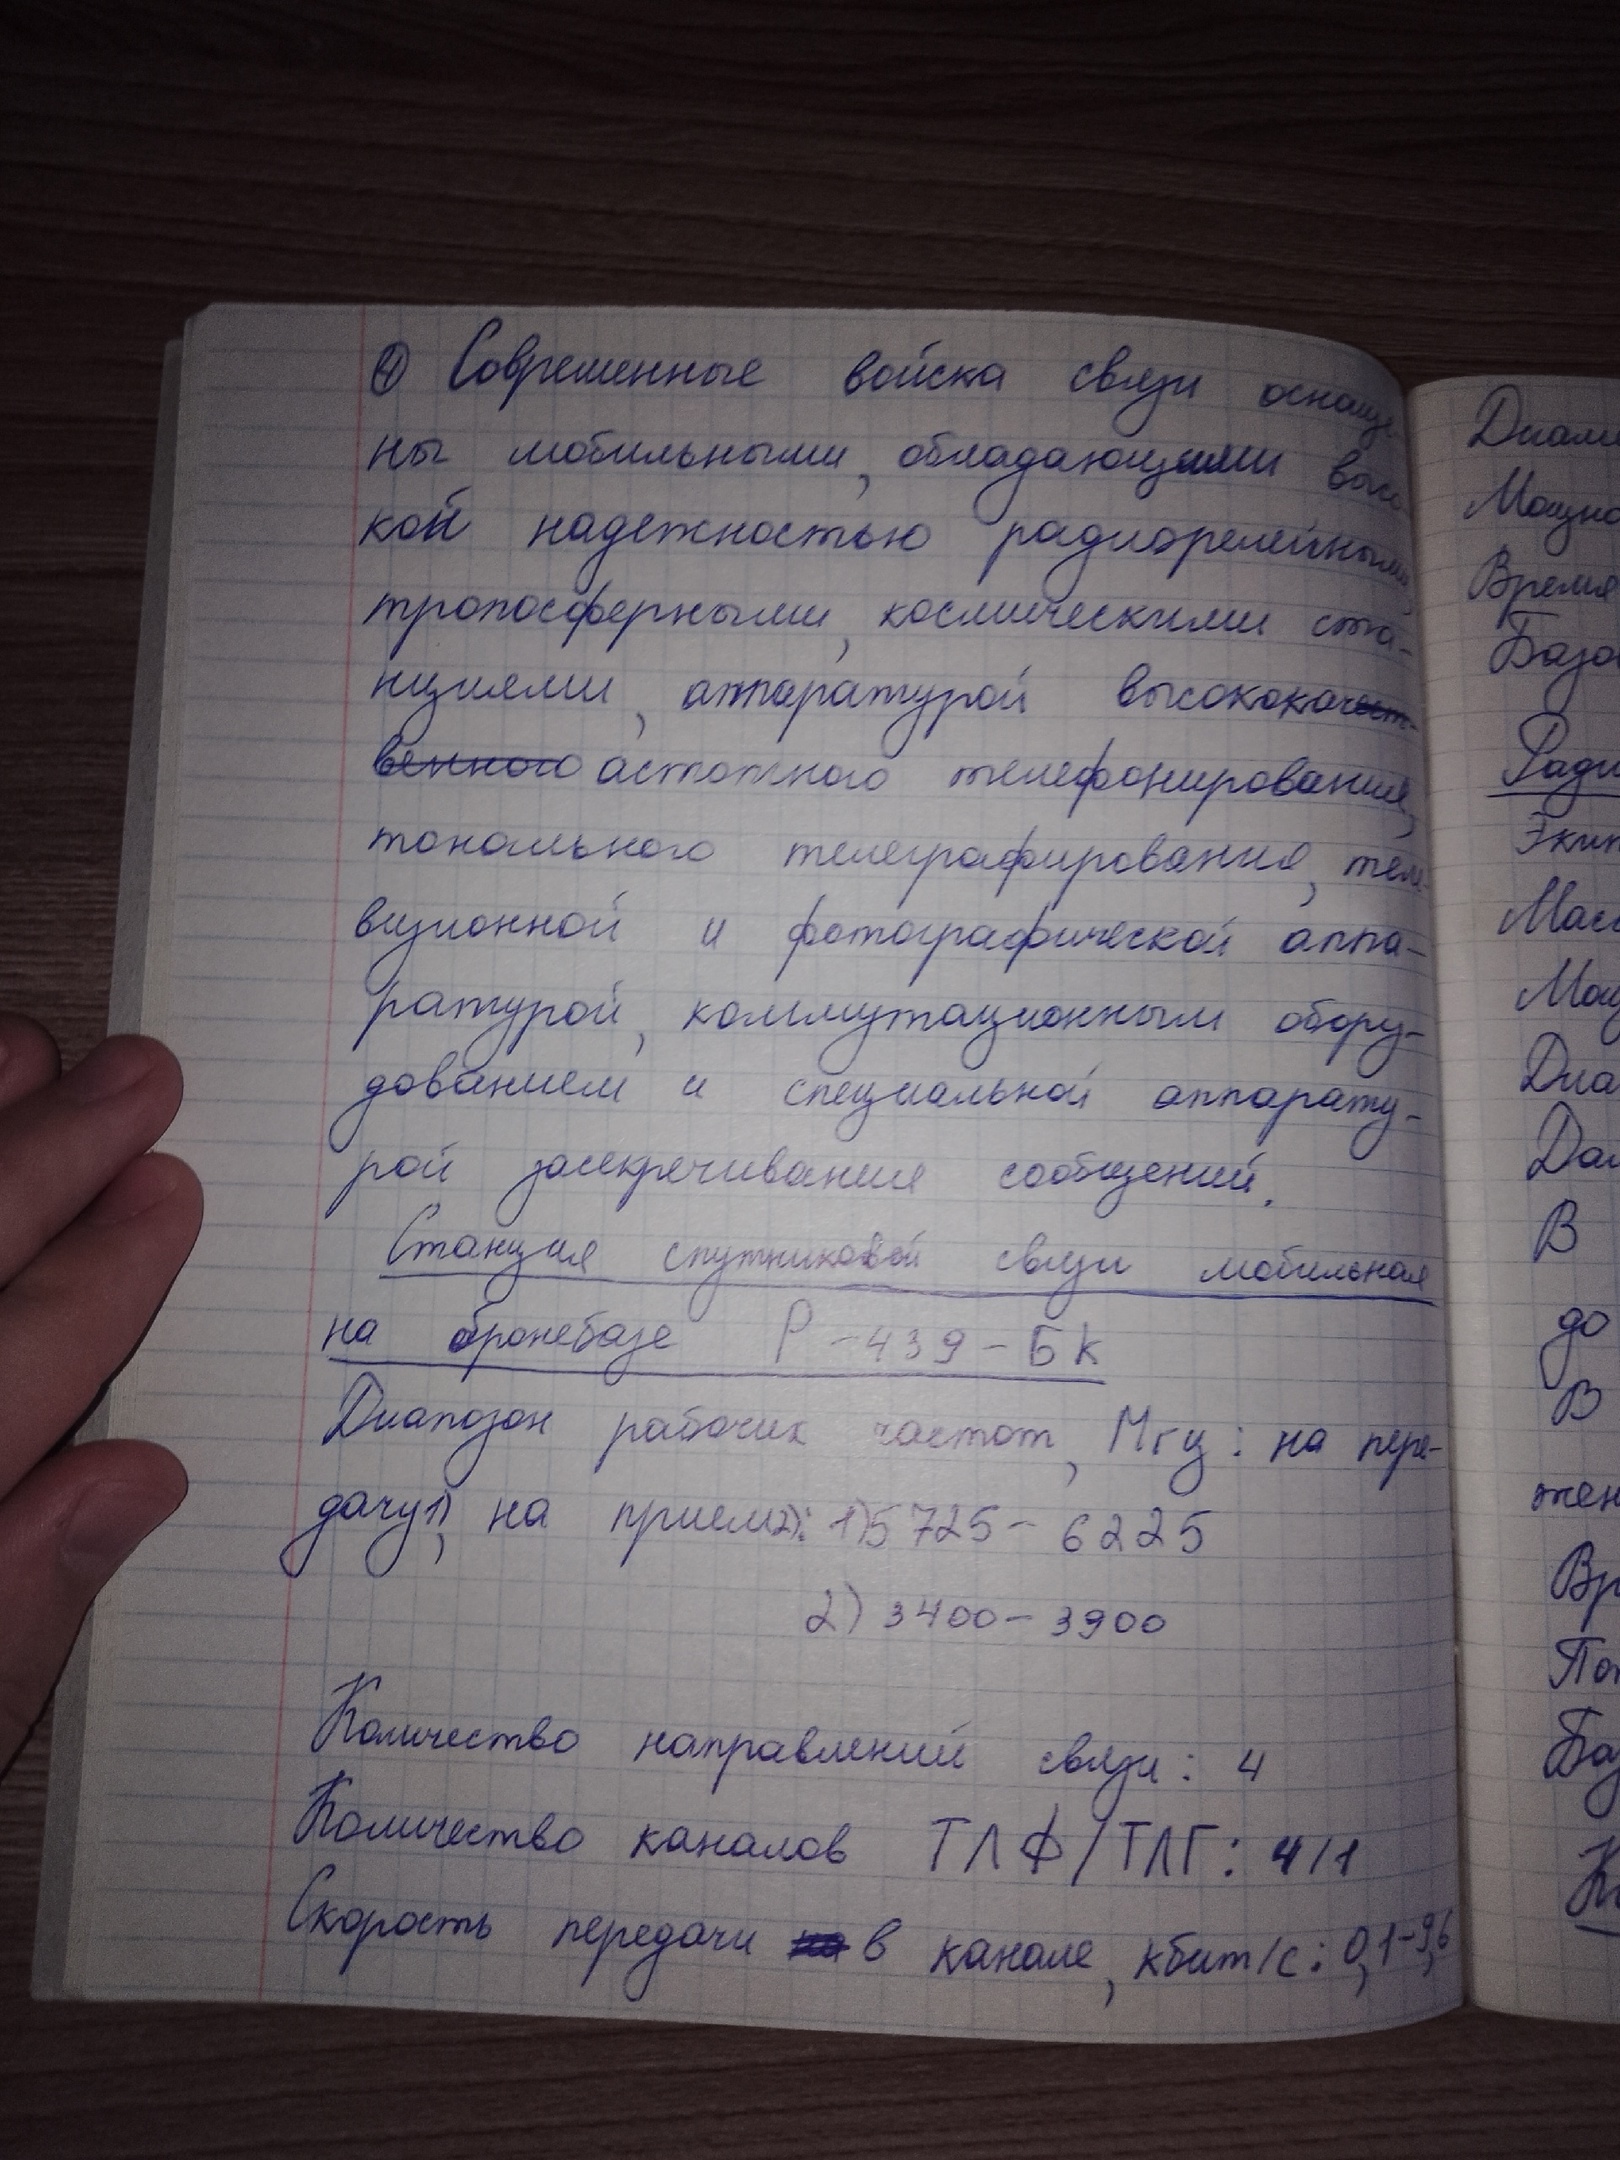 ④ Современные войска связи оснаще
ны мобильными, обладающими высо
кой надежностью радиорелейными,
тропосферными, космическими ста-
нциями, аппаратурой высококачест-
венного астотного телефонирования,
тонального телеграфирования, теле-
визионной и фотографической аппа-
ратурой, коммутационным обору-
дованием и специальной аппарату-
рой засекречивания сообщений.
Станция спутниковой связи мобильная
на бронебазе Р-439-БК
Диапозон рабочих частот, Мгц: на пере-
дачу1), на прием2): 1)5725-6225
2) 3400-3900
Количество направлений связи: 4
Количество каналов ТЛФ/ТЛГ: 4/1
Скорость передачи в канале, кбит/с: 0,1-9,6
Мощно
Время
База
Ради
Экип
Масс
Мощ
Диа
Дал
В
до
В
жен
Вр
Баз